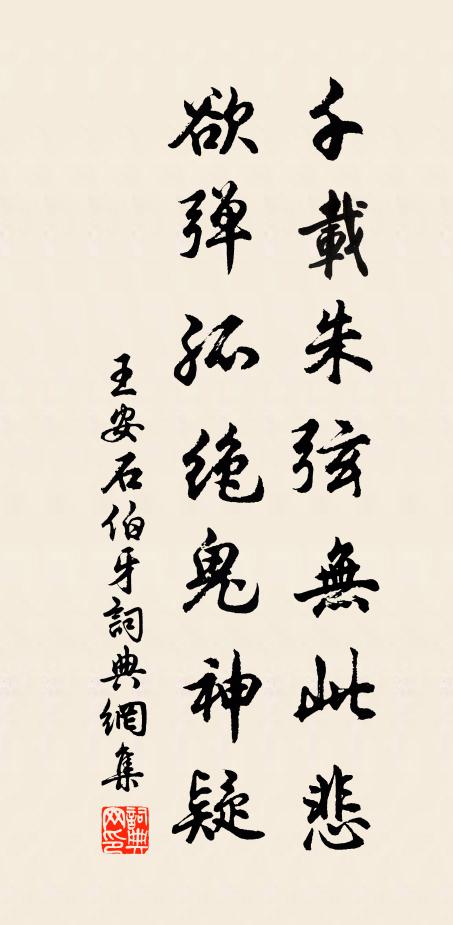 千載朱弦無此悲
欲弹孤絶鬼神疑
王安石伯牙詞典網集
詞典网印